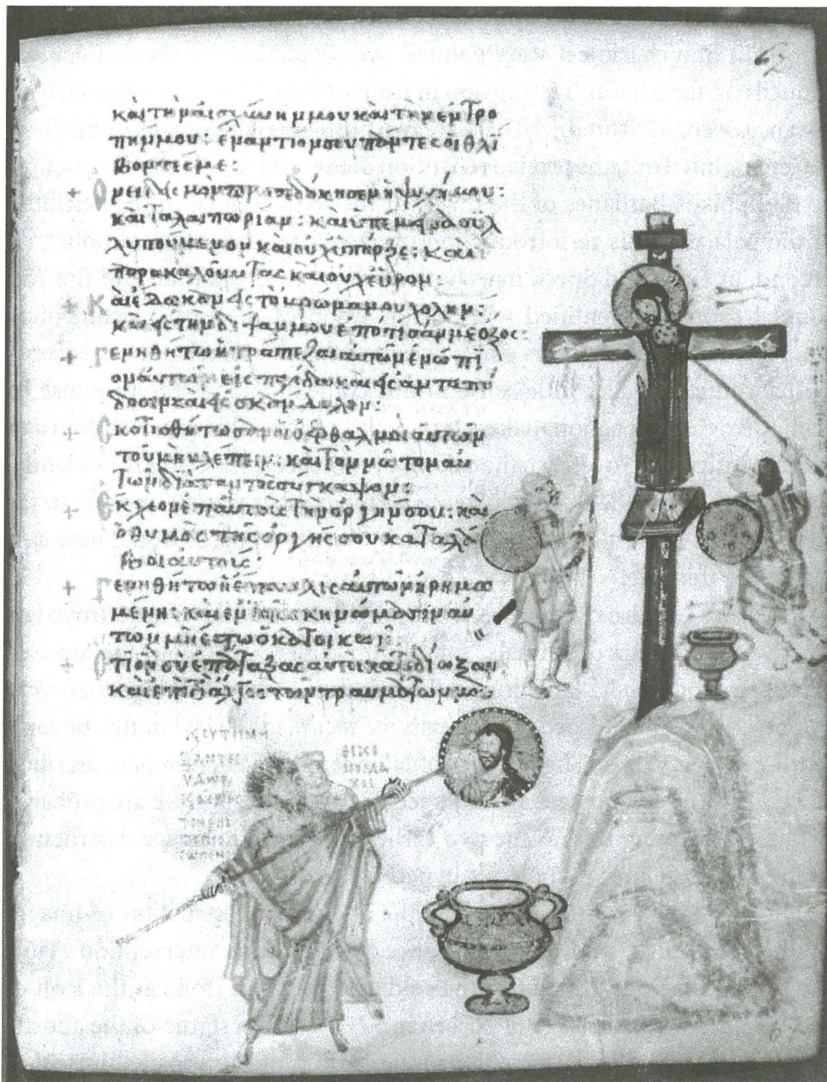 καὶ τὴν αἰσχύνην μου καὶ τὴν ἐντρο
πήν μου: ἐναντίον σου πάντες οἱ θλί
βοντές με:
+ Ὀνειδισμὸν προσεδόκησεν ἡ ψυχή μου:
καὶ ταλαιπωρίαν: καὶ ὑπέμεινα συλ
λυπούμενον καὶ οὐχ ὑπῆρξε: καὶ
παρακαλοῦντας καὶ οὐχ εὗρον
+ Καὶ ἔδωκαν εἰς τὸ βρῶμά μου χολήν:
καὶ εἰς τὴν δίψαν μου ἐπότισάν με ὄξος:
+ Γενηθήτω ἡ τράπεζα αὐτῶν ἐνώπι
ον αὐτῶν εἰς παγίδα καὶ εἰς ἀνταπό
δοσιν καὶ εἰς σκάνδαλον:
+ Σκοτισθήτωσαν οἱ ὀφθαλμοὶ αὐτῶν
τοῦ μὴ βλέπειν: καὶ τὸν νῶτον αὐ
τῶν διὰ παντὸς σύγκαμψον:
+ Ἔκχεον ἐπ αὐτοὺς τὴν ὀργήν σου: καὶ
ὁ θυμὸς τῆς ὀργῆς σου καταλά
βοι αὐτούς:
+ Γενηθήτω ἡ ἔπαυλις αὐτῶν ἠρημω
μένη: καὶ ἐν τοῖς σκηνώμασιν αὐ
τῶν μὴ ἔστω ὁ κατοικῶν:
+ Ὅτι ὃν σὺ ἐπάταξας αὐτοὶ κατεδίωξαν
καὶ ἐπὶ τὸ ἄλγος τῶν τραυμάτων μου